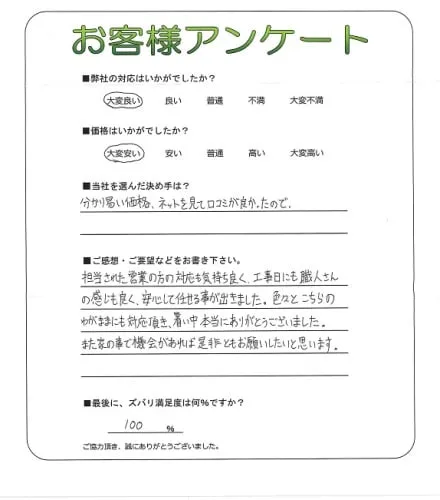 お客様アンケート
■弊社の対応はいかがでしたか？
大変良い 良い 普通 不満 大変不満
■価格はいかがでしたか？
大変安い 安い 普通 高い 大変高い
■当社を選んだ決め手は？
分かり易い価格、ネットを見て口コミが良かったので。
■ご感想・ご要望などをお書き下さい。
担当された営業の方の対応も気持ち良く、工事日にも職人さん
の感じも良く、安心して任せる事が出きました。色々と こちらの
わがままにも対応頂き、暑い中本当にありがとうございました。
また家の事で機会があれば是非ともお願いしたいと思います。
■最後に、ズバリ満足度は何%ですか？
100 %
ご協力頂き、誠にありがとうございました。